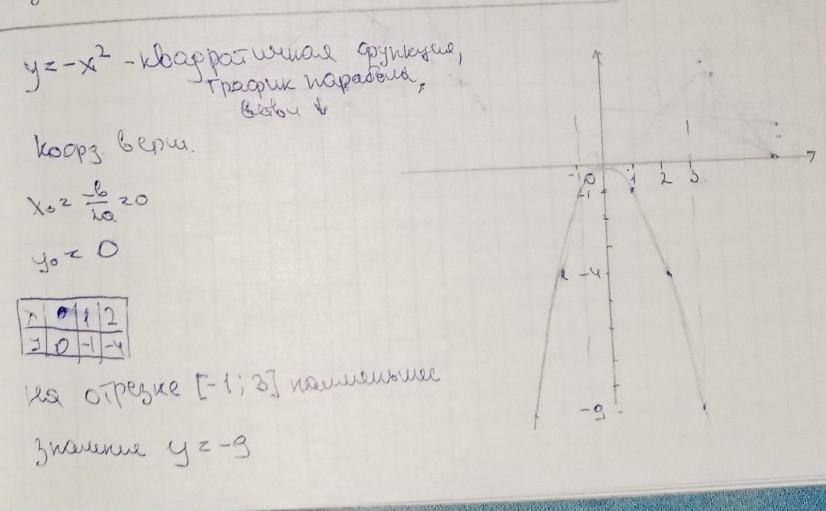 y = -x² - квадратичная функция,
график парабола,
ветви ↓
Коорд. верш.
x₀ = -b/2a = 0
y₀ = 0
x 0 1 2
y 0 -1 -4
на отрезке [-1; 3] наименьшее
значение y = -9
-1 0 1 2 3
-1
-4
-9